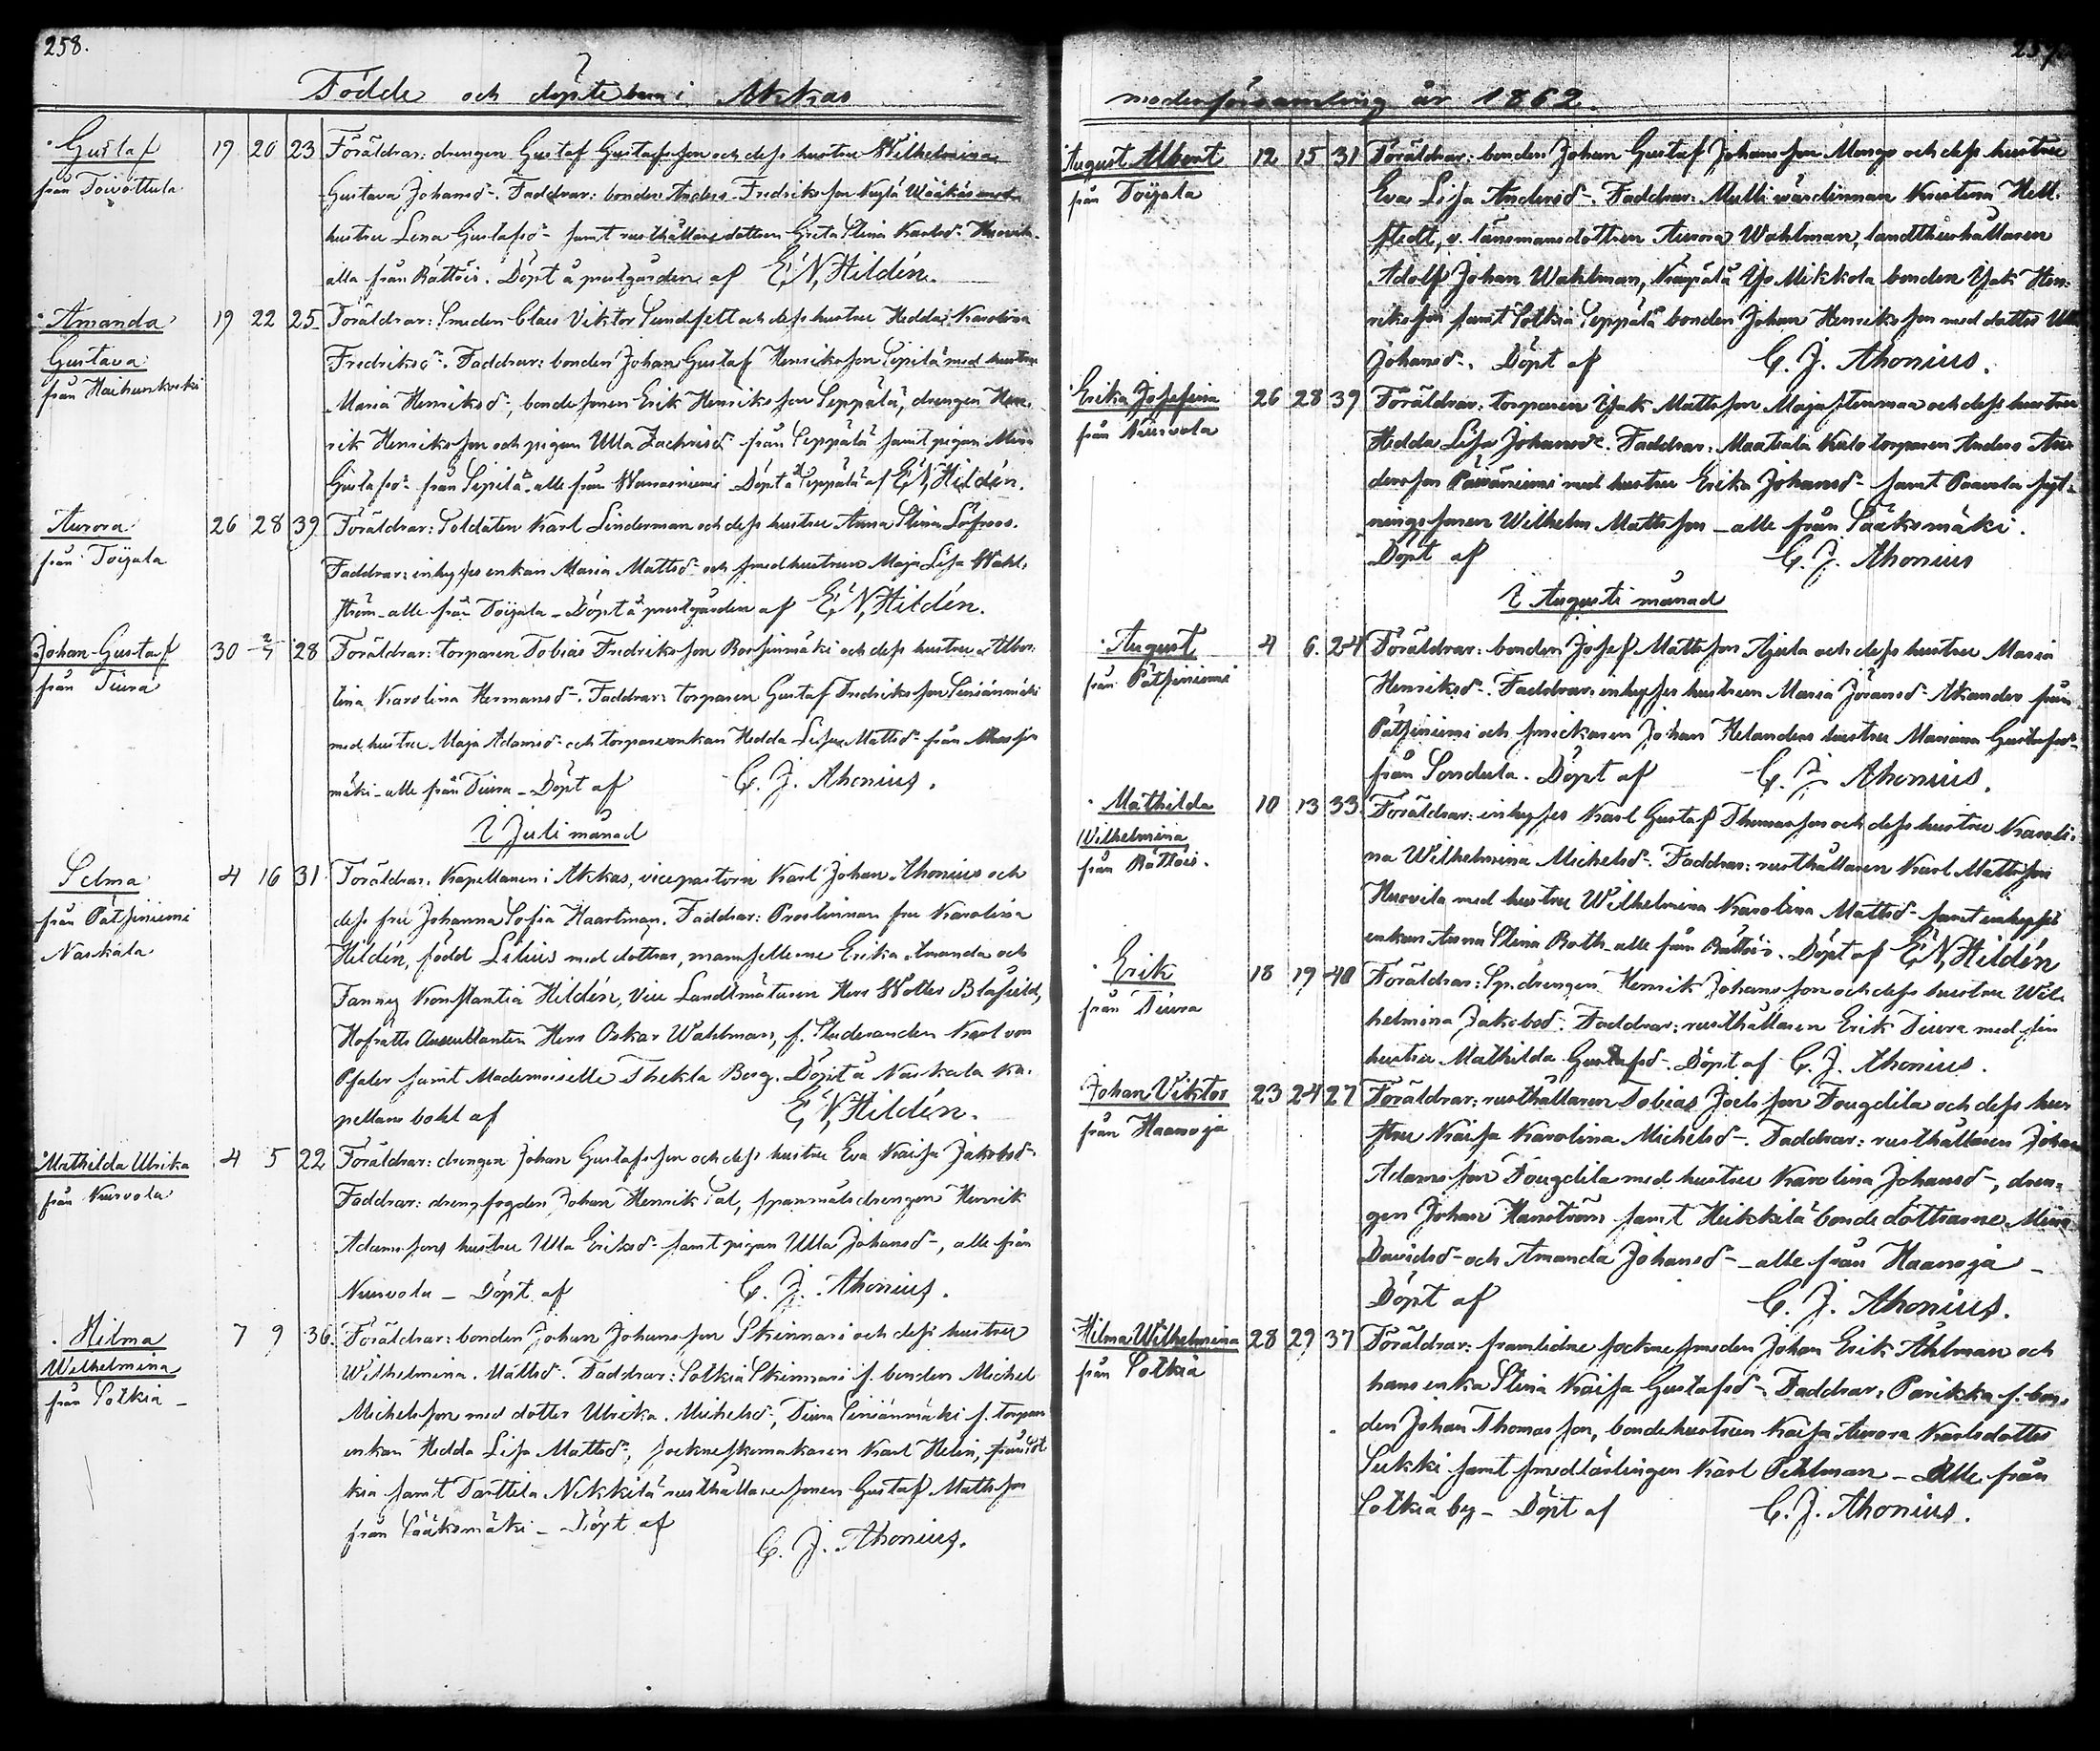 258.
Födde och döpte barn i Akkas
Gustaf 19 20 23 Föräldrar: drengen Gustaf Gustafsson och dess hustru Wilhelmina
från Toivottula Gustava Johansd. Faddrar: bonden Anders Fredriksson
hustru Lena Gustafsd. samt rusthållare dottren Greta Stina Karlsd.
alla från Rättöis. Döpt å prestgården af E. N. Hildén.
Amanda 19 22 25 Föräldrar: Smeden Claes Viktor Sundsell och dess hustru Hedda Karolina
Gustava Fredriksd. Faddrar: bonden Johan Gustaf Henriksson Sipilä med hustru
från Maria Henriksd., bondesonen Erik Henriksson Seppälä, drengen Hen-
rik Henriksson och pigan Ulla Zachrisd. från Seppälä samt pigan Mina
Gustafsd. från Sipilä alle från Warrasniemi Döpt å Seppälä af E. N. Hildén.
Aurora 26 28 39 Föräldrar: Soldaten Karl Linderman och dess hustru Anna Stina Löfroos.
från Toijala Faddrar: inhyses enkan Maria Mattsd. och smedhustrun Maja Lisa Wahl-
ström alle från Toijala Döpt å prestgården af E. N. Hildén.
Johan Gustaf 30 2/7 28 Föräldrar: torparen Tobias Fredriksson och dess hustru Alber-
från Tiura tina Karolina Hermansd. Faddrar: torparen Gustaf Fredriksson
med hustru Maja Adamsd. och torpareenkan Hedda Lisa Mattsd. från
mäki alle från Tiura Döpt af C. J. Ahonius.
I Juli månad
Selma 4 16 31 Föräldrar: Kapellanen i Akkas, vicepastorn Karl Johan Ahonius och
från Pätsiniemi dess fru Johanna Sofia Haartman. Faddrar: Prostinnan fru Karolina
Naskala Hildén, född Lilius med döttrar, mamsellerne Erika Amanda och
Fanny Konstantia Hildén, Vice Landtmätaren Herr Wolter Blåfield,
Hofrätts Auscultanten Herr Oskar Wahlman, f. Studeranden Karl von
Pfaler samt Mademoiselle Thekla Berg. Döpt å Naskala ka-
pellans bohl af E. N. Hildén.
Mathilda Ulrika 4 5 22 Föräldrar: drengen Johan Gustafsson och dess hustru Eva Kaisa Jakobsd.
från Nurvola Faddrar: drengfogden Johan Henrik Sal, spannmålsdrengen Henrik
Adamssons hustru Ulla Eriksd. samt pigan Ulla Johansd., alle från
Nurvola Döpt af C. J. Ahonius.
Hilma 7 9 36. Föräldrar: bonden Johan Johansson Skinnari och dess hustru
Wilhelmina Wilhelmina Mattsd. Faddrar: Sotkia Skinnari f. bonden Michel
från Sotkia Michelsson med dotter Ulrika Michelsd., Tiura f. torpare
enkan Hedda Lisa Mattsd., sockneskomakaren Karl Helin, från Sot-
kia samt Tarttila Nikkilä rusthållaresonen Gustaf Mattsson
från Sääksmäki Döpt af C. J. Ahonius.
moderförsamling år 1862.
August Albert 12 15 31 Föräldrar: bonden Johan Gustaf Johansson Mongo och dess hustru
från Toijala Eva Lisa Andersd. Faddrar: Mulli värdinnan Kristina Hell-
stedt, v. länsmansdottren Aurora Wahlman, landthushållaren
Adolf Johan Wahlman, Mikkola bonden Isak Hen-
riksson samt Sotkia Seppälä bonden Johan Henriksson med dotter Ulla
Johansd. Döpt af C. J. Ahonius.
Erika Josefina 26 28 39 Föräldrar: torparen Isak Mattsson och dess hustru
från Nurvola Hedda Lisa Johansd. Faddrar: torparen Anders An-
dersson med hustru Erika Johansd. samt
Wilhelm Mattsson alle från Sääksmäki.
Döpt af C. J. Ahonius
I Augusti månad
August 4 6. 24 Föräldrar: bonden Josef Mattsson Ajula och dess hustru Maria
från Pätsiniemi Henriksd. Faddrar: inhyses hustrun Maria Göransd. Akander från
Pätsiniemi och snickaren Johan Helanders hustru Mariana Gustafsd.
från Sondula. Döpt af C. J. Ahonius.
Mathilda 10 13 33. Föräldrar: inhyses Karl Gustaf Thomasson och dess hustru Karoli-
Wilhelmina na Wilhelmina Michelsd. Faddrar: rusthållaren Karl Mattsson
från Rättöis. Huovila med hustru Wilhelmina Karolina Mattsd. samt inhyses
enkan Anna Stina Roth alle från Rättöis. Döpt af E. N. Hildén
Erik 18 19 40 Föräldrar: Sp. drengen Henrik Johansson och dess hustru Wil-
från Tiura helmina Jakobsd. Faddrar: rusthållaren Erik Tiura med sin
hustru Mathilda Gustafsd. Döpt af C. J. Ahonius.
Johan Viktor 23 24 27 Föräldrar: rusthållaren Tobias Joelsson Fougdila och dess hu-
från Haanoja stru Kaisa Karolina Michelsd. Faddrar: rusthållaren Johan
Adamsson Fougdila med hustru Karolina Johansd., dren-
gen Johan Hanström samt Heikkilä bondedöttrarne Mina
Davidsd. och Amanda Johansd. alle från Haanoja
Döpt af C. J. Ahonius.
Hilma Wilhelmina 28 29 37 Föräldrar: framlidne socknesmeden Johan Erik Ahlman och
från Sotkia hans enka Stina Kaisa Gustafsd. Faddrar: Parikka f. bon-
den Johan Thomasson, bondehustrun Kaisa Aurora Karlsdotter
Sukki samt smedlärlingen Karl Pihlman Alle från
Sotkia by Döpt af C. J. Ahonius.